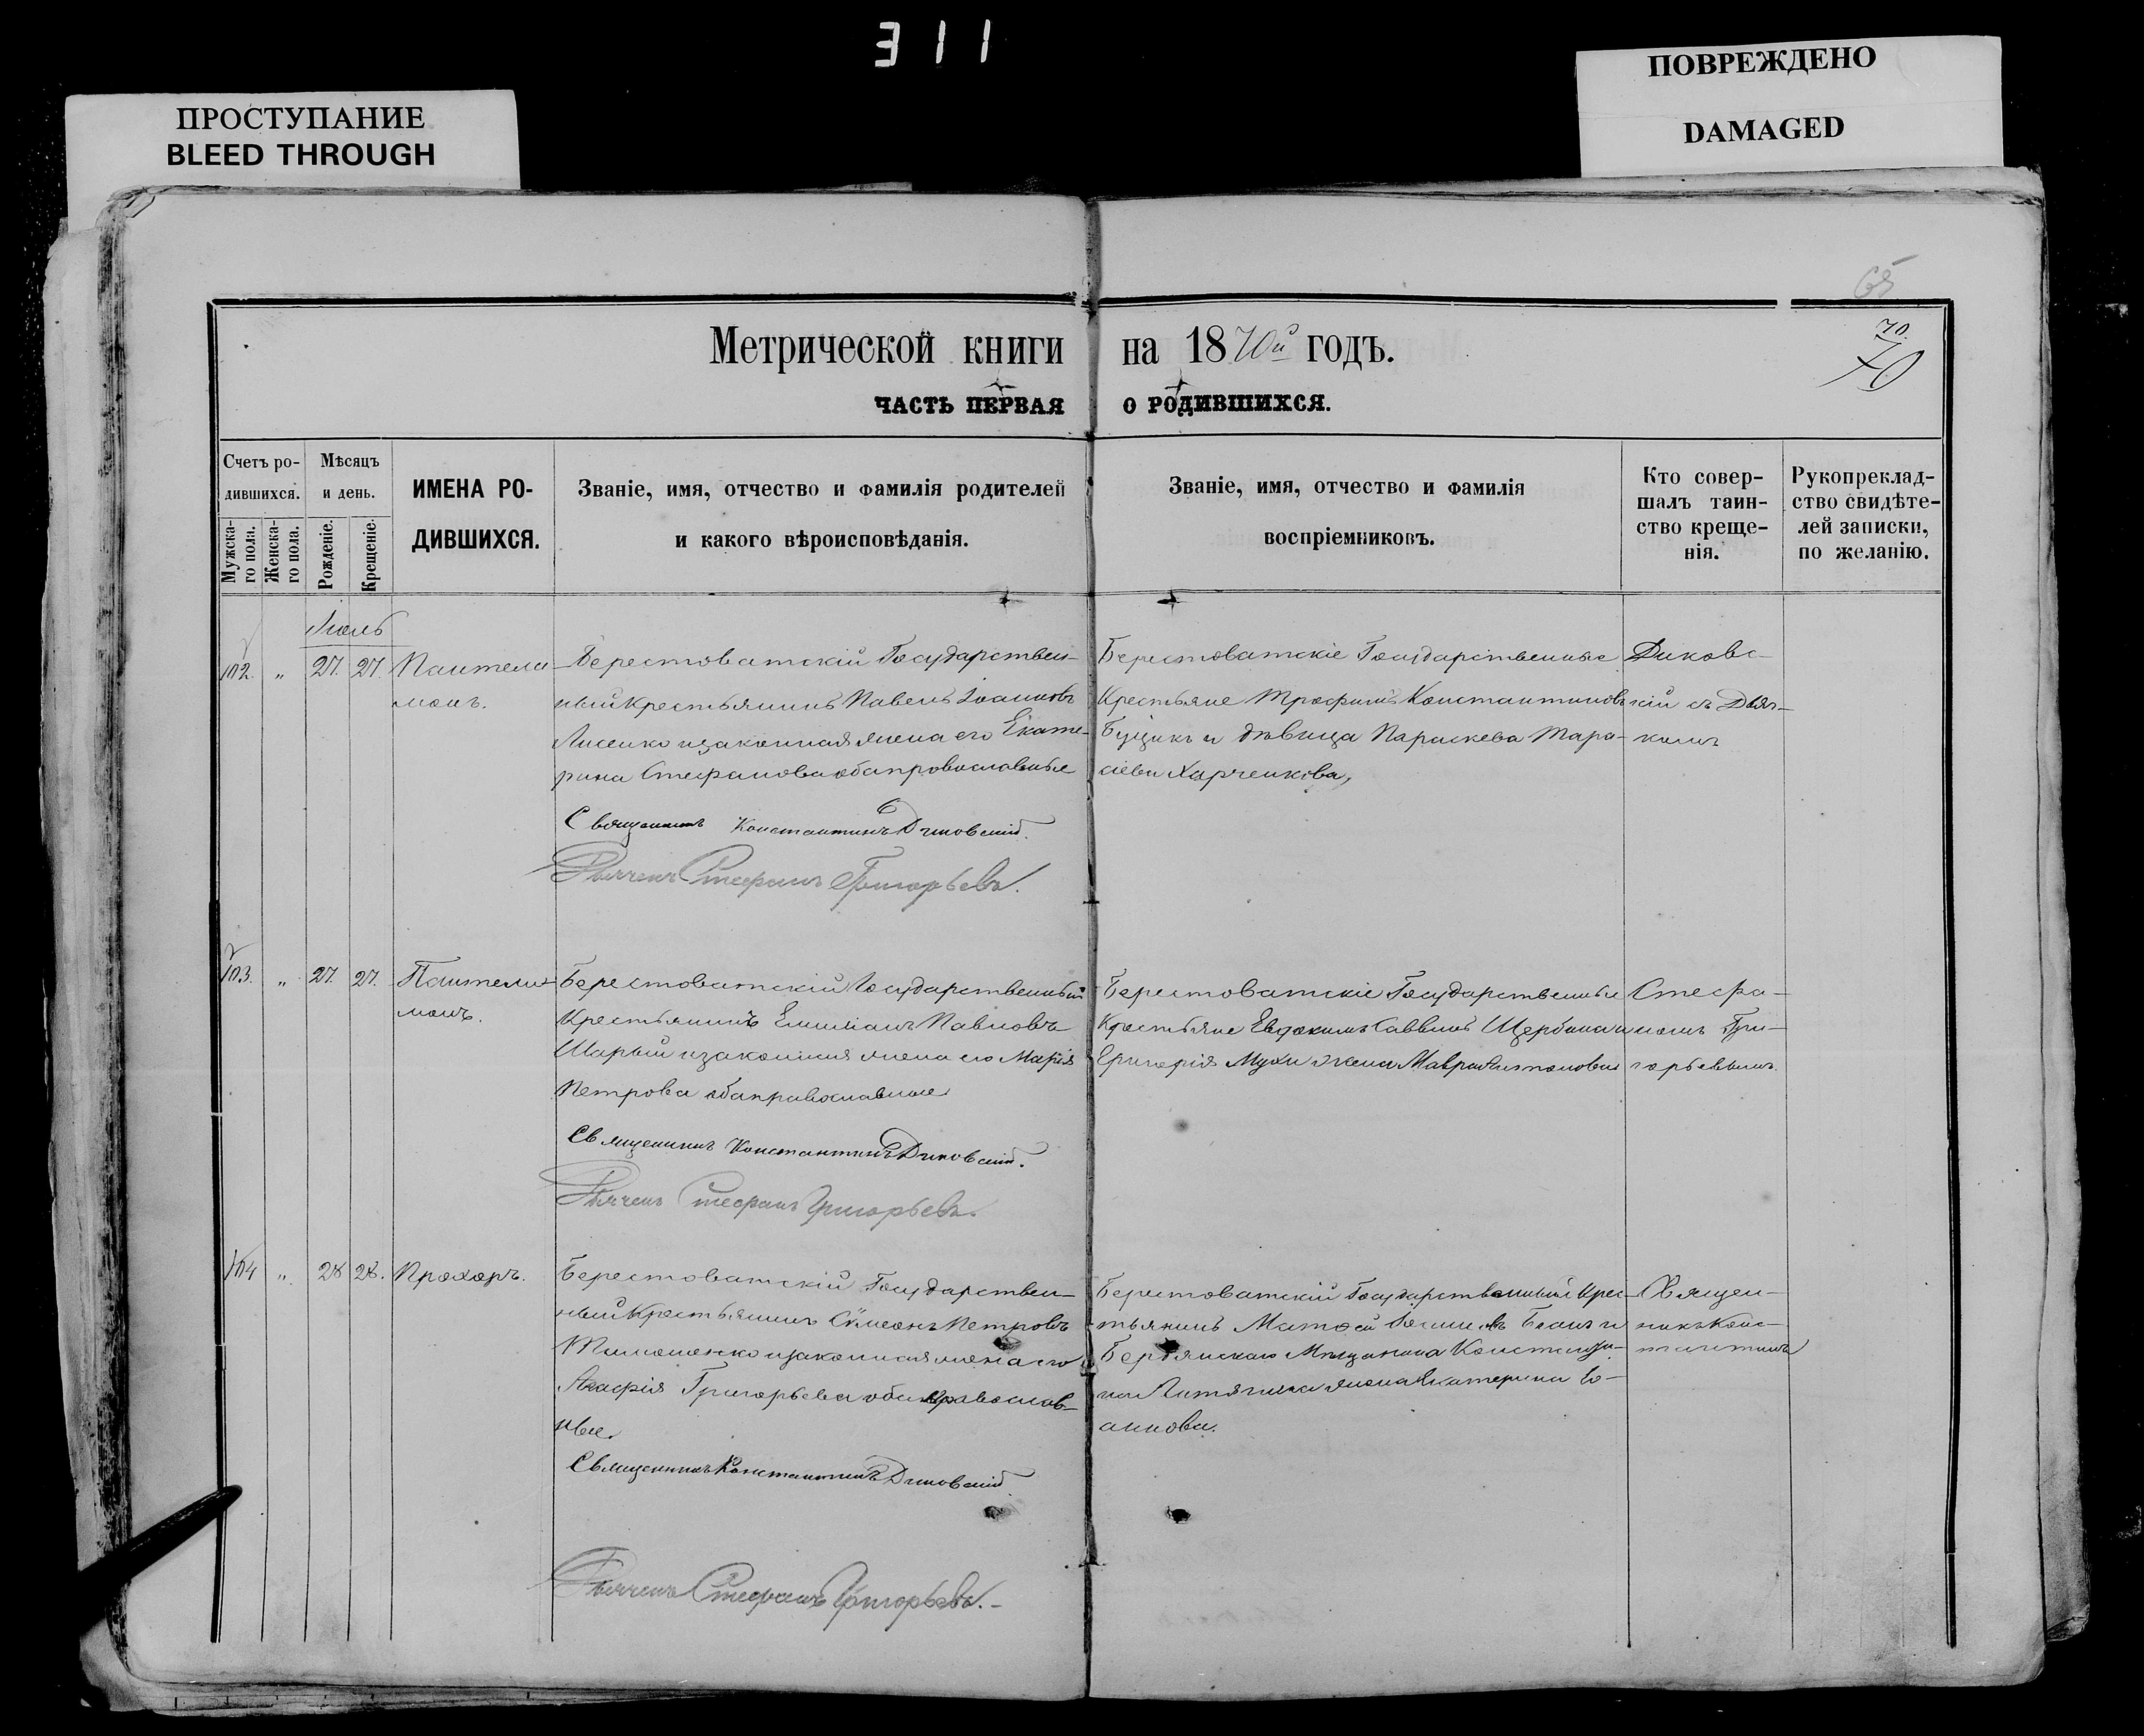 311
ПРОСТУПАНИЕ
BLEED THROUGH
ПОВРЕЖДЕНО
DAMAGED
65
70.
70
Метрической книги на 1870й годъ.
ЧАСТЬ ПЕРВАЯ О РОДИВШИХСЯ.
Счетъ ро-
дившихся.
Мужска-
го пола.
Женска-
го пола.
Мѣсяцъ
и день.
Рожденіе.
Крещеніе.
ИМЕНА РО-
ДИВШИХСЯ.
Званіе, имя, отчество и фамилія родителей
и какого вѣроисповѣданія.
Званіе, имя, отчество и фамилія
воспріемниковъ.
Кто совер-
шалъ таин-
ство креще-
нія.
Рукоприклад-
ство свидѣте-
лей записки,
по желанію.
Июль
102. „ 27. 27. Пантели
монъ.
Берестоватскій Государствен-
ный Крестьянинъ Павелъ Іоанновъ
Лисенко и законная жена его Екате-
рина Стефанова оба православные
Священникъ Константинъ Диковскій.
Дьячекъ Стефанъ Григорьевъ.
Берестоватскіе Государственные
Крестьяне Трофимъ Константиновъ
Буцикъ и дѣвица Параскева Тара-
сіева Харченкова,
Диковс-
кій съ Дьяч-
комъ
103. „ 27. 27. Пантели
монъ.
Берестоватскій Государственный
Крестьянинъ Емиліанъ Павловъ
Шарый и законная жена его Марія
Петрова оба православные
Священникъ Константинъ Диковскій.
Дьячекъ Стефанъ Григорьевъ.
Берестоватскіе Государственные
Крестьяне Евдокимъ Саввинъ Щербина и
Григорія Мухи жена Мавра Антонова
Стефа-
номъ Гри-
горьевымъ.
104 „ 28 28. Прохоръ.
Берестоватскій Государствен-
ный Крестьянинъ Сѵмеонъ Петровъ
Тимошенко и законная жена его
Агафія Григорьева оба православ-
ные.
Священникъ Константинъ Диковскій.
Дьячекъ Стефанъ Григорьевъ.
Берестоватскій Государственный Крес-
тьянинъ Матѳей и
Бердянскаго Мѣщанина Константи-
на жена Екатерина Іо-
аннова.
Священ-
никъ Конс-
тантинъ